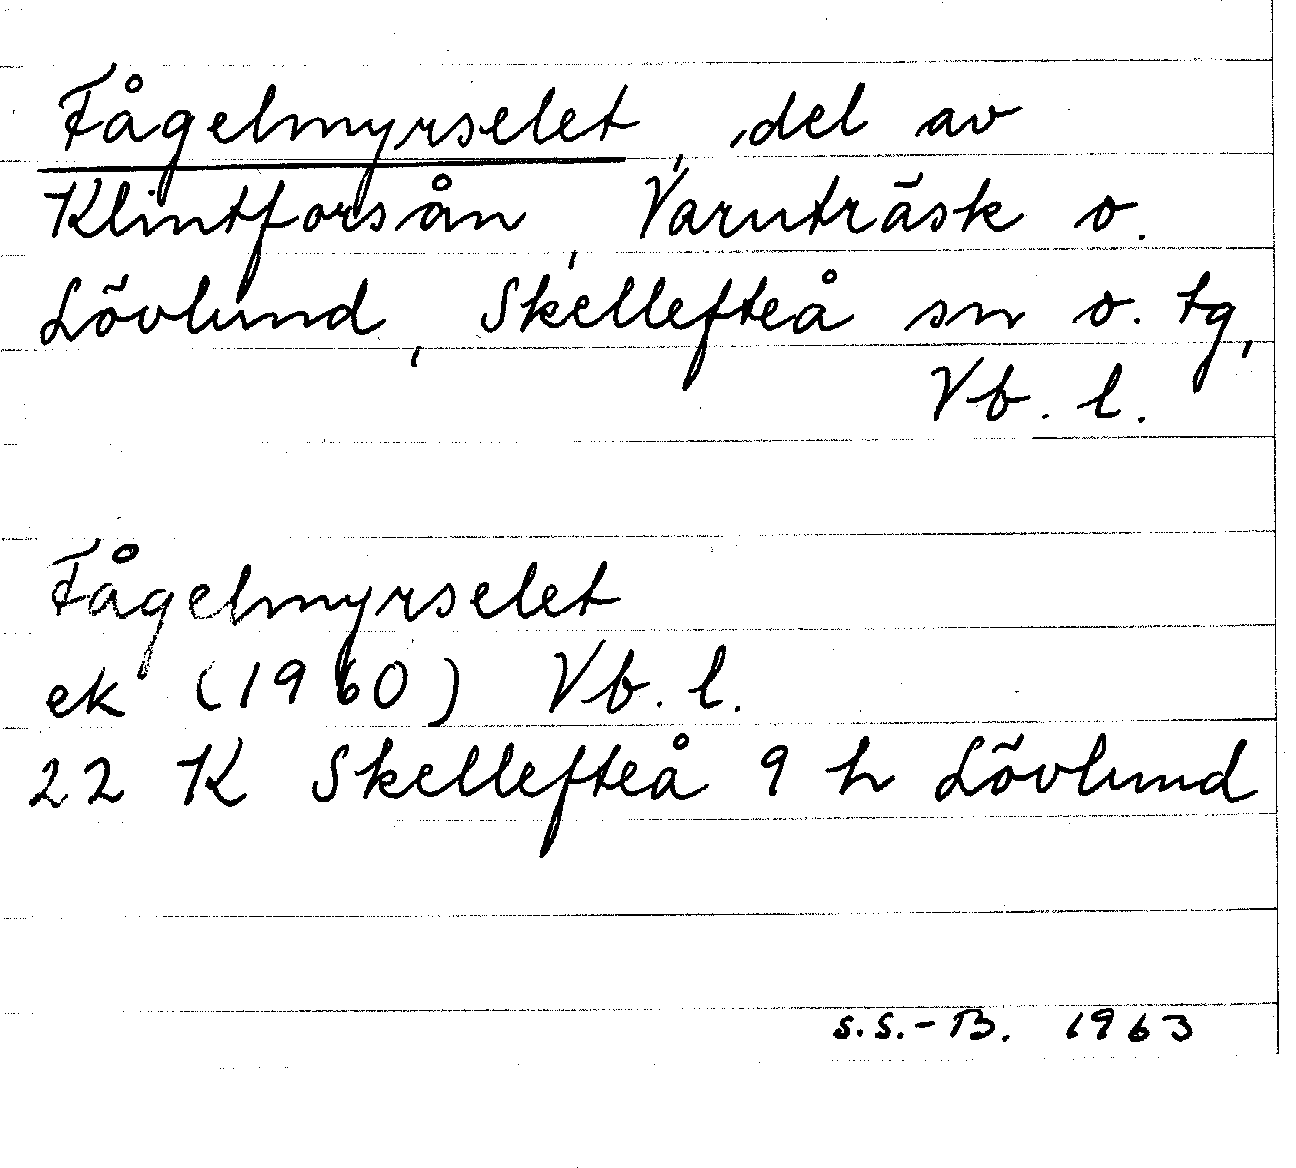 Fågelmyrselet, del av
Klintforsån, Varuträsk o.
Lövlund, Skellefteå sn o. tg,
Vb. l.
Fågelmyrselet
ek (1960) Vb. l.
22 K Skellefteå 9 h Lövlund
S.S.-B. 1963